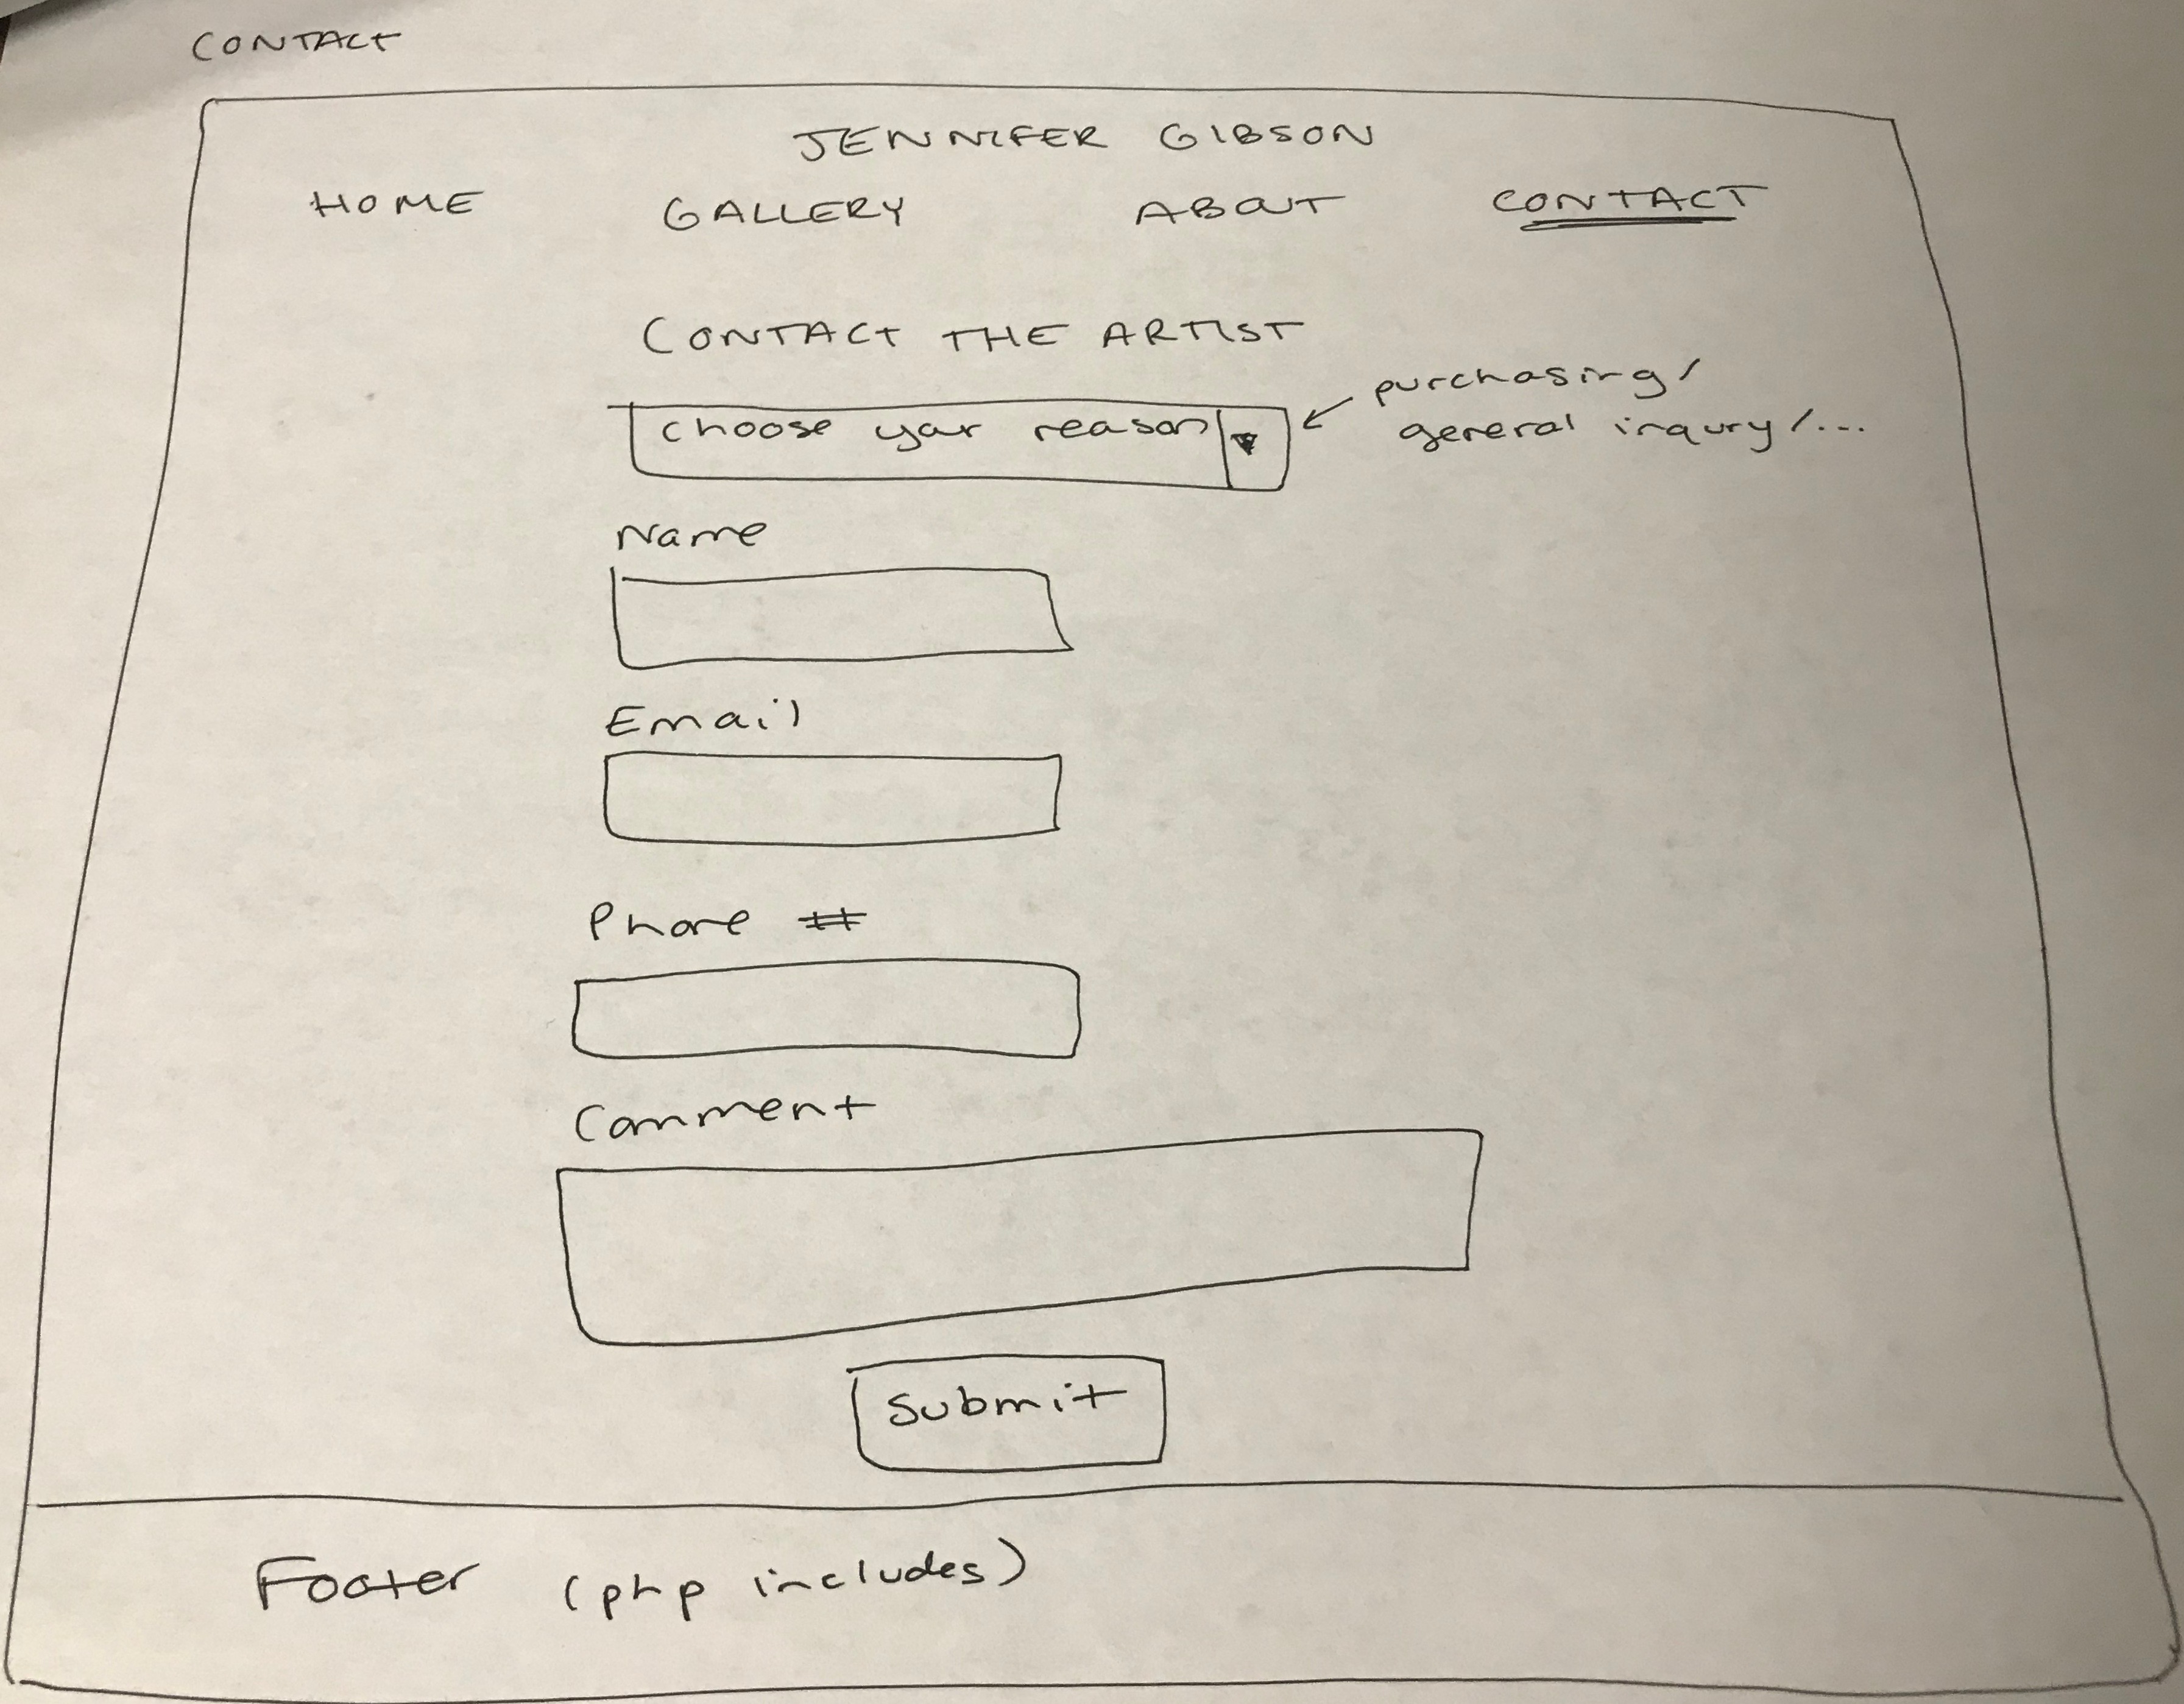 CONTACT
JENNIFER GIBSON
HOME GALLERY ABOUT CONTACT
CONTACT THE ARTIST
choose your reason
purchasing/
general inqury/...
Name
Email
Phone #
Comment
Submit
Footer (php includes)